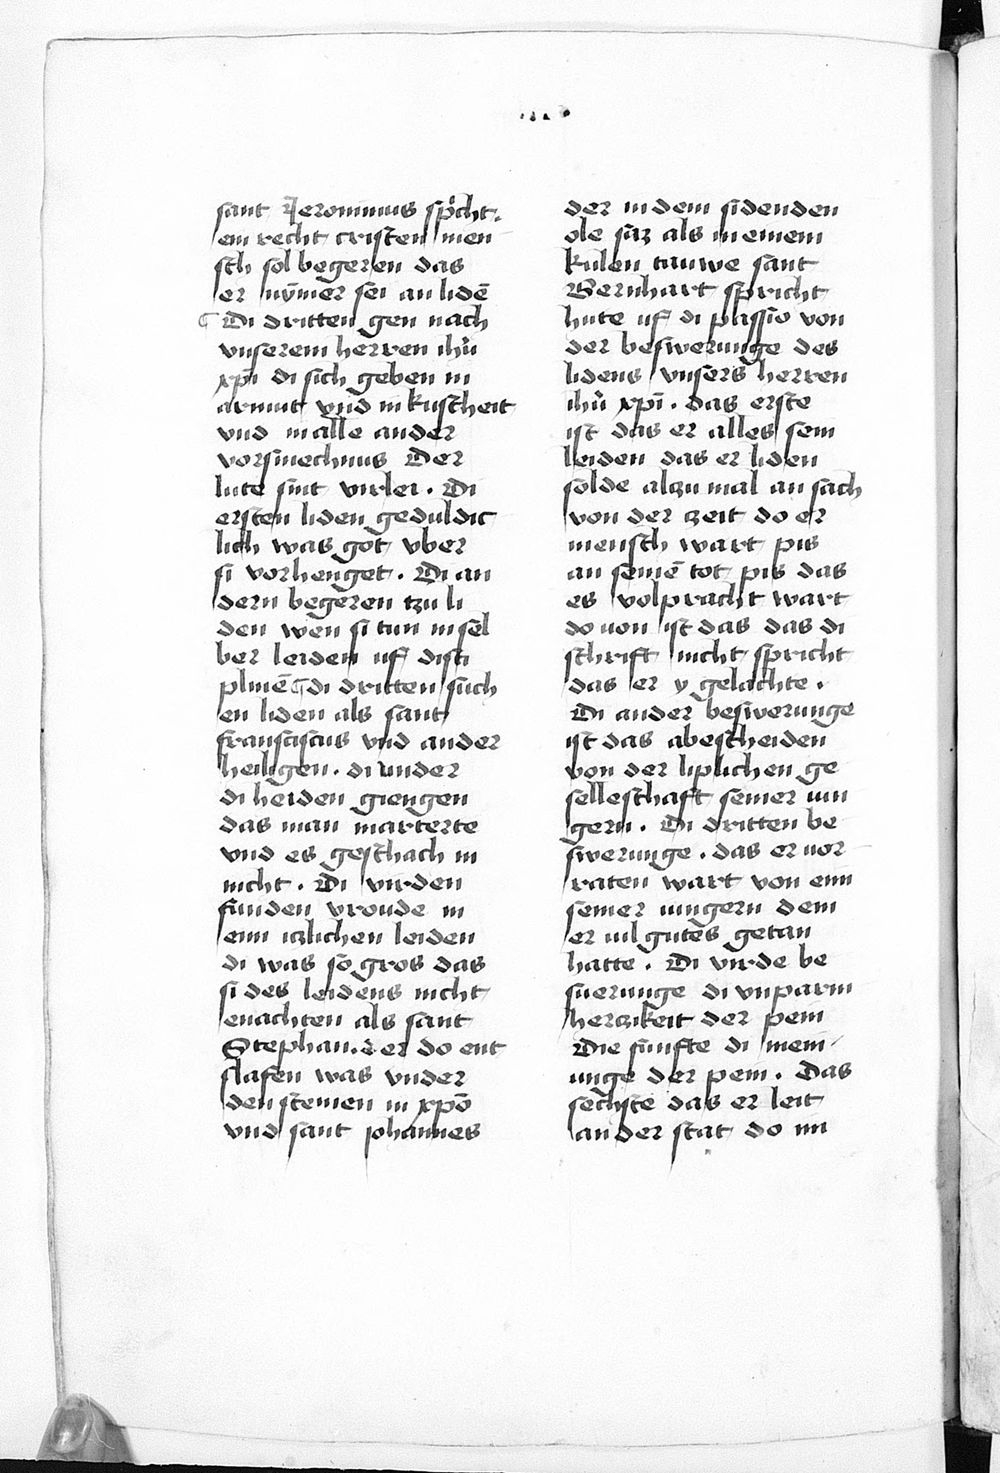 sant Jeronimus spͦcht.
ein recht cristen men
sch sol begeren das
er nv̄mer sei an lidē
¶ Di dritten gen nach
vnserem herren ihū
xp̄i di sich geben in
armut vnd in kuscheit
vnd in alle ander
vorsmechnus Der
lute sint virlei . Di
ersten liden geduldic
lich was got vber
si vorhenget . Di an
dern begeren tzu li
den wen si tun in sel
ber leiden uf disci
plinē ¶ di dritten such
en liden als sant
franciscus vnd ander
heiligen . di under
di heiden giengen
das man marterte
vnd es geschach in
nicht . Di virden
funden vroude in
einn iczlichen leiden
di was so gros das
si des leidens nicht
enachten als sant
Stephan . der do ent
slafen was vnder
den steinen in xpō
vnd sant johannes
der in dem sidenden
ole saz als in einem
kulen tauwe sant
Bernhart spricht
hute uf di passio von
der beswerunge des
lidens vnsers herren
ihū xp̄i . das erste
ist das er alles sein
leiden das er liden
solde alzu mal an sach
von der zeit do er
mensch wart pis
an seinē tot pis das
es volpracht wart
do uon ist das das di
schrift nicht spricht
das er y gelachte .
Di ander beswerunge
ist das abescheiden
von der liplichen ge
selleschaft seiner iun
gern . Di dritten be
swerunge . das er uor
raten wart von einn
seiner iungern dem
er uil gutes getan
hatte . Di virde be
suerunge di vnparm
herczikeit der pein
Die funfte di mein
unge der pein . Das
sechste das er leit
an der stat do im